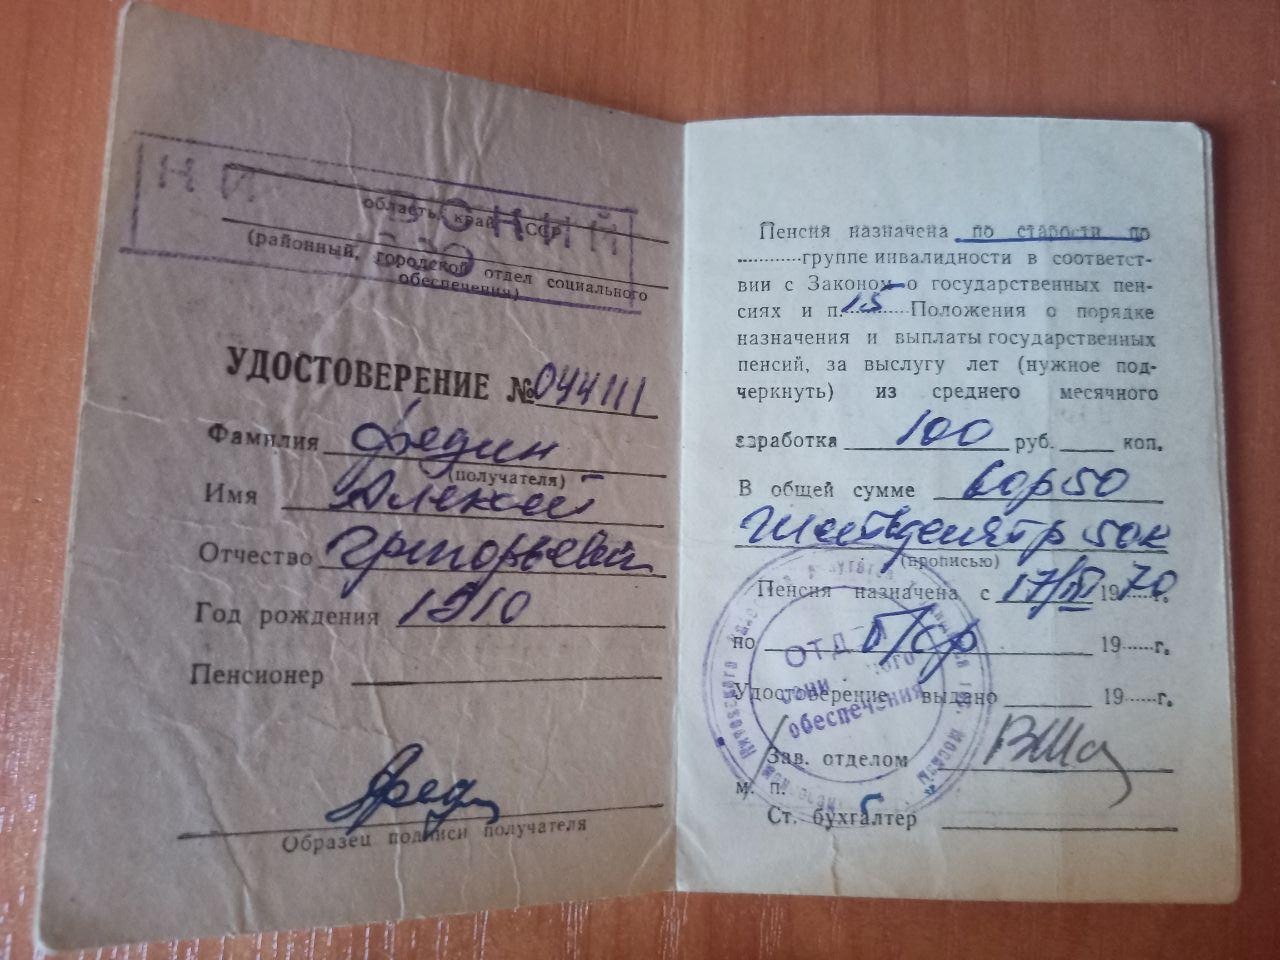 область, край, ССР
(районный, городской отдел социального
обеспечения)
УДОСТОВЕРЕНИЕ №044111
Фамилия Федин
(получателя)
Имя Алексей
Отчество Григорьевич
Год рождения 1910
Пенсионер
Образец подписи получателя
Пенсия назначена по старости по
группе инвалидности в соответст-
вии с Законом о государственных пен-
сиях и п. 15 Положения о порядке
назначения и выплаты государственных
пенсий, за выслугу лет (нужное под-
черкнуть) из среднего месячного
заработка 100 руб. коп.
В общей сумме 60р50
Шестьдесят р 50к
(прописью)
Пенсия назначена с 17/III 1970 г.
по 19 г.
Удостоверение выдано 19 г.
Зав. отделом
м. п.
Ст. бухгалтер
обеспечения
Кировского
Москвы